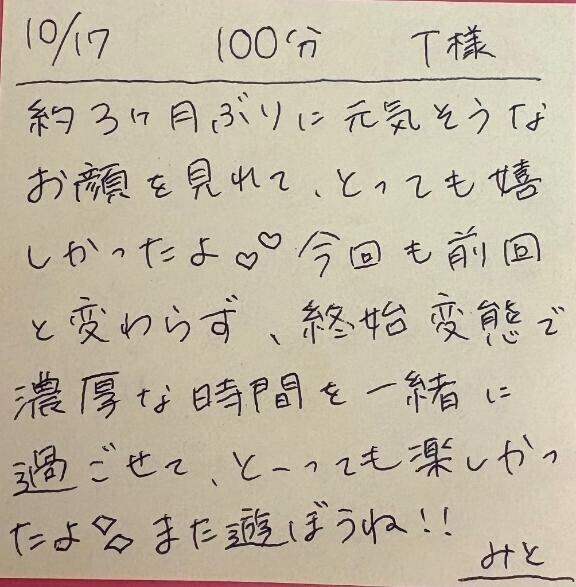 10/17 100分 T様
約3ヶ月ぶりに元気そうな
お顔を見れて、とっても嬉
しかったよ♡♡今回も前回
と変わらず、終始変態で
濃厚な時間を一緒に
過ごせて、とーっても楽しかっ
たよ♡♡また遊ぼうね!!
みと